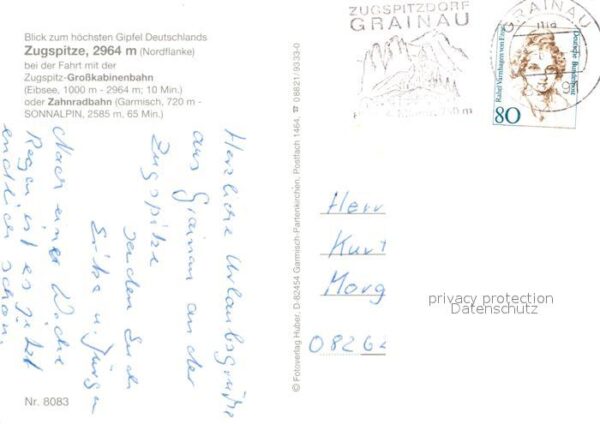 Blick zum höchsten Gipfel Deutschlands
Zugspitze, 2964 m (Nordflanke)
bei der Fahrt mit der
Zugspitz-Großkabinenbahn
(Eibsee, 1000 m - 2964 m; 10 Min.)
oder Zahnradbahn (Garmisch, 720 m -
SONNALPIN, 2585 m, 65 Min.)
Herzliche Urlaubsgrüße
aus Grainau an der
Zugspitze
senden Euch
u. Jürgen
Nach einer Woche
Regen ist es jetzt
endlich schön.
Nr. 8083
© Fotoverlag Huber, D-82454 Garmisch-Partenkirchen, Postfach 1464, ☎ 08821/9333-0
ZUGSPITZDORF
GRAINAU
GRAINAU
Rahel Varnhagen von Ense
Deutsche Bundespost
80
Herr
Kurt
Morg
08262
privacy protection
Datenschutz